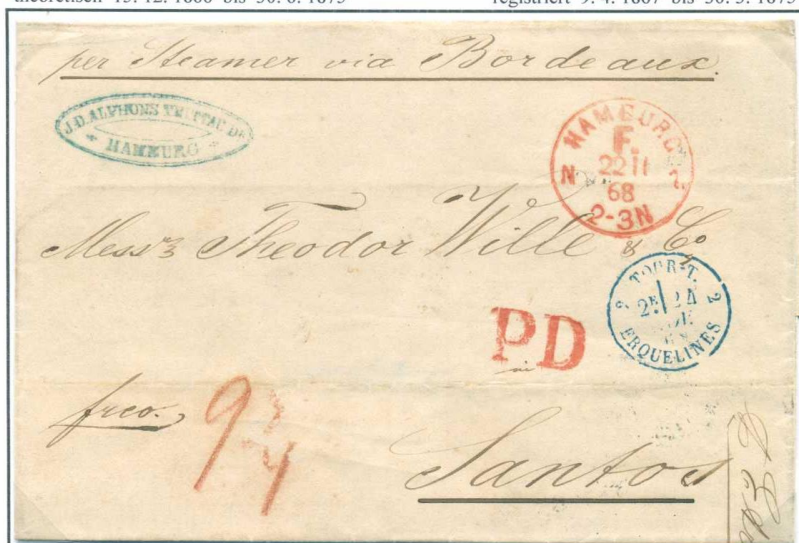 theoretisch 15. 12. 1866 bis 30. 6. 1875
registriert 9. 4. 1867 bis 30. 3. 1875
per Steamer via Bordeaux.
J.D. ALPHONS
HAMBURG
HAMBURG
F.
N 2
22 11
68
2-3N
Messrs Theodor Wille & Co
TOUR-T.
2 2
2E 24
ERQUELINES
PD
frco.
Santos